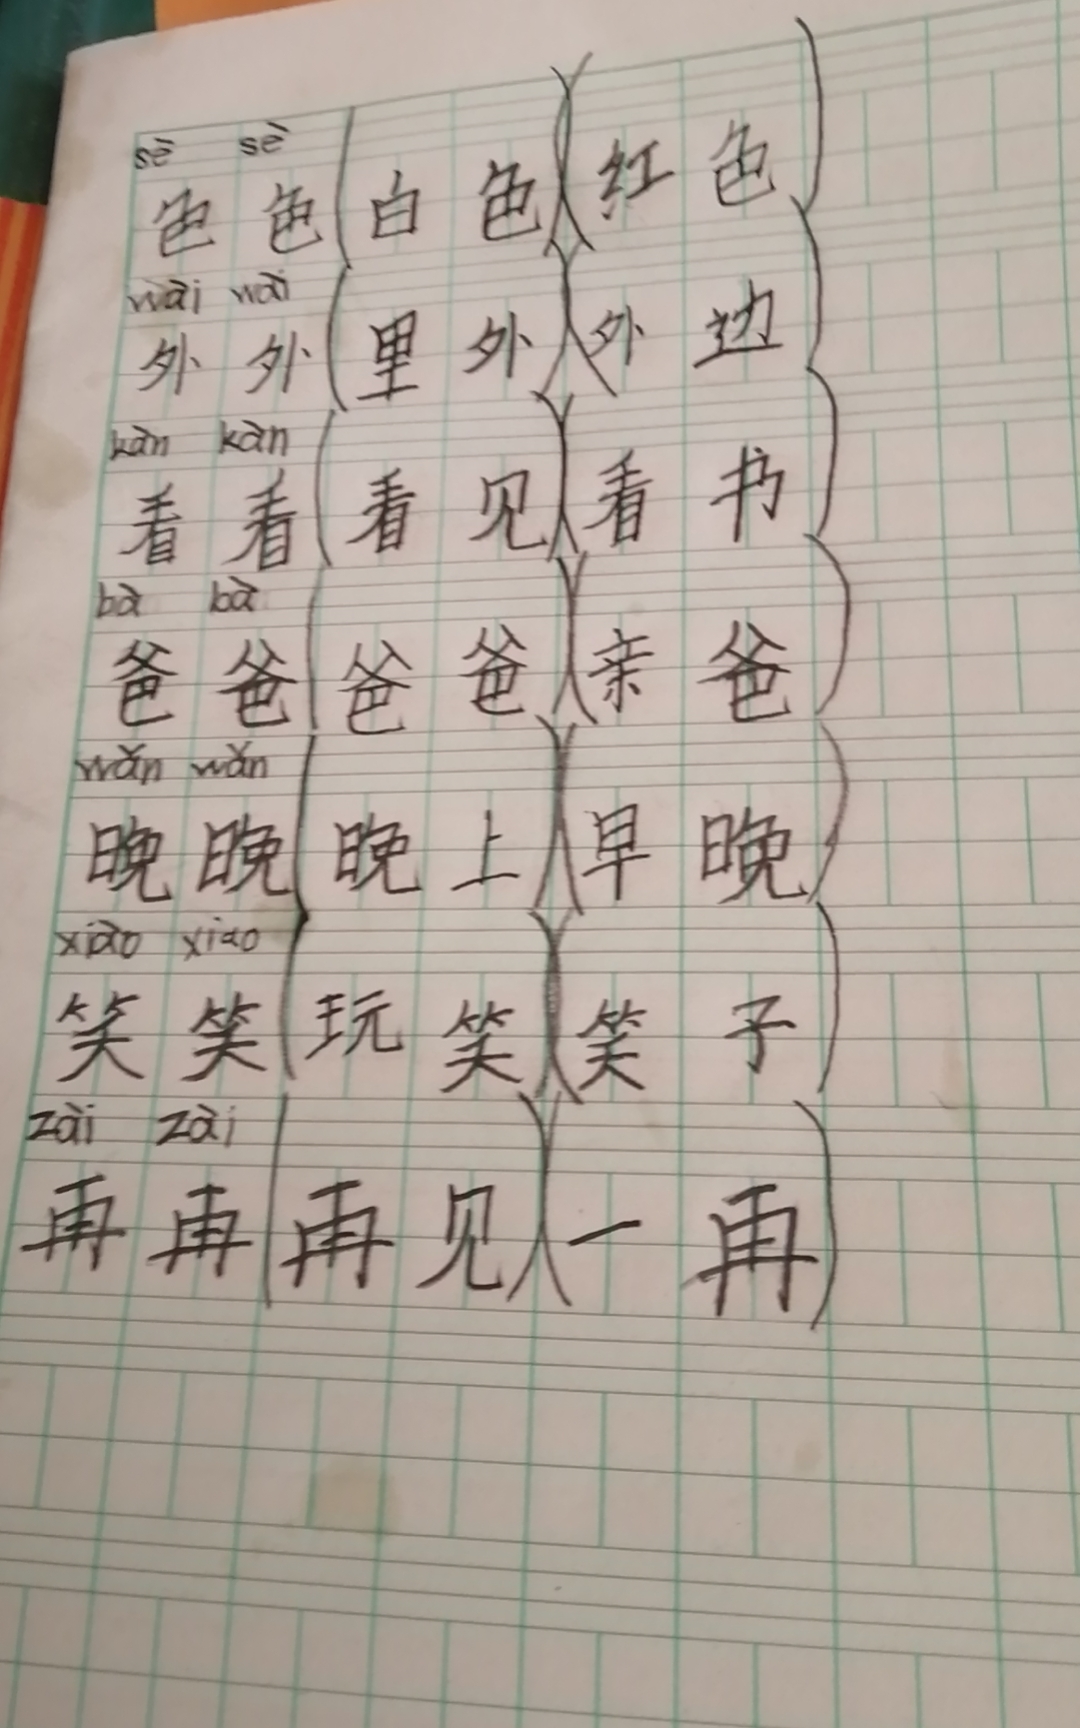 sè sè
色 色 (白 色)(红 色)
wài wài
外 外 (里 外)(外 边)
kàn kàn
看 看 (看 见)(看 书)
bà bà
爸 爸 (爸 爸)(亲 爸)
wǎn wǎn
晚 晚 (晚 上)(早 晚)
xiào xiao
笑 笑 (玩 笑)(笑 子)
zài zài
再 再 (再 见)(一 再)